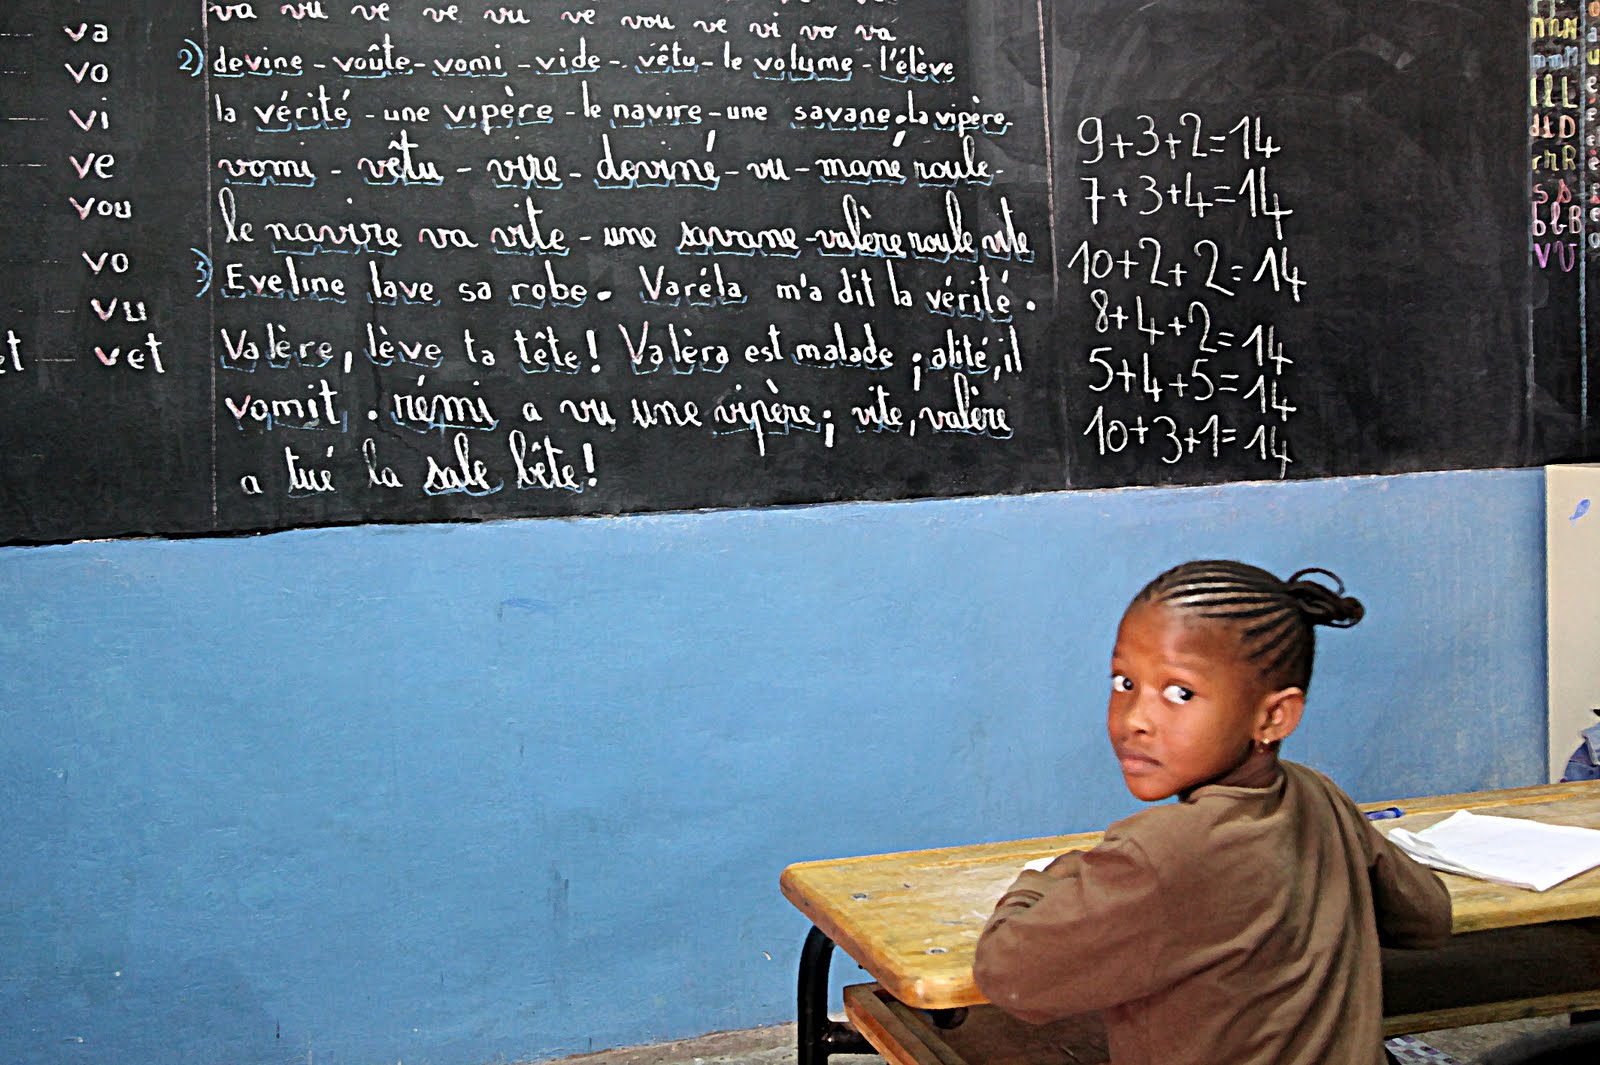 va
vo
vi
ve
vou
vo
vu
et vet
va vu ve ve vu ve vou ve vi vo va
2) devine - voûte - vomi - vide - vêtu - le volume - l'élève
la vérité - une vipère - le navire - une savane. la vipère.
vomi - vêtu - vire - deviné - vu - mané roule.
le navire va vite - une savane - valère roule vite
3) Eveline lave sa robe. Varéla m'a dit la vérité.
Valère, lève ta tête! Valéra est malade ; alité, il
vomit. rémi a vu une vipère; vite, valère
a tué la sale bête!
9+3+2=14
7+3+4=14
10+2+2=14
8+4+2=14
5+4+5=14
10+3+1=14
l l L
d d D
r r R
s s
b b B
v v